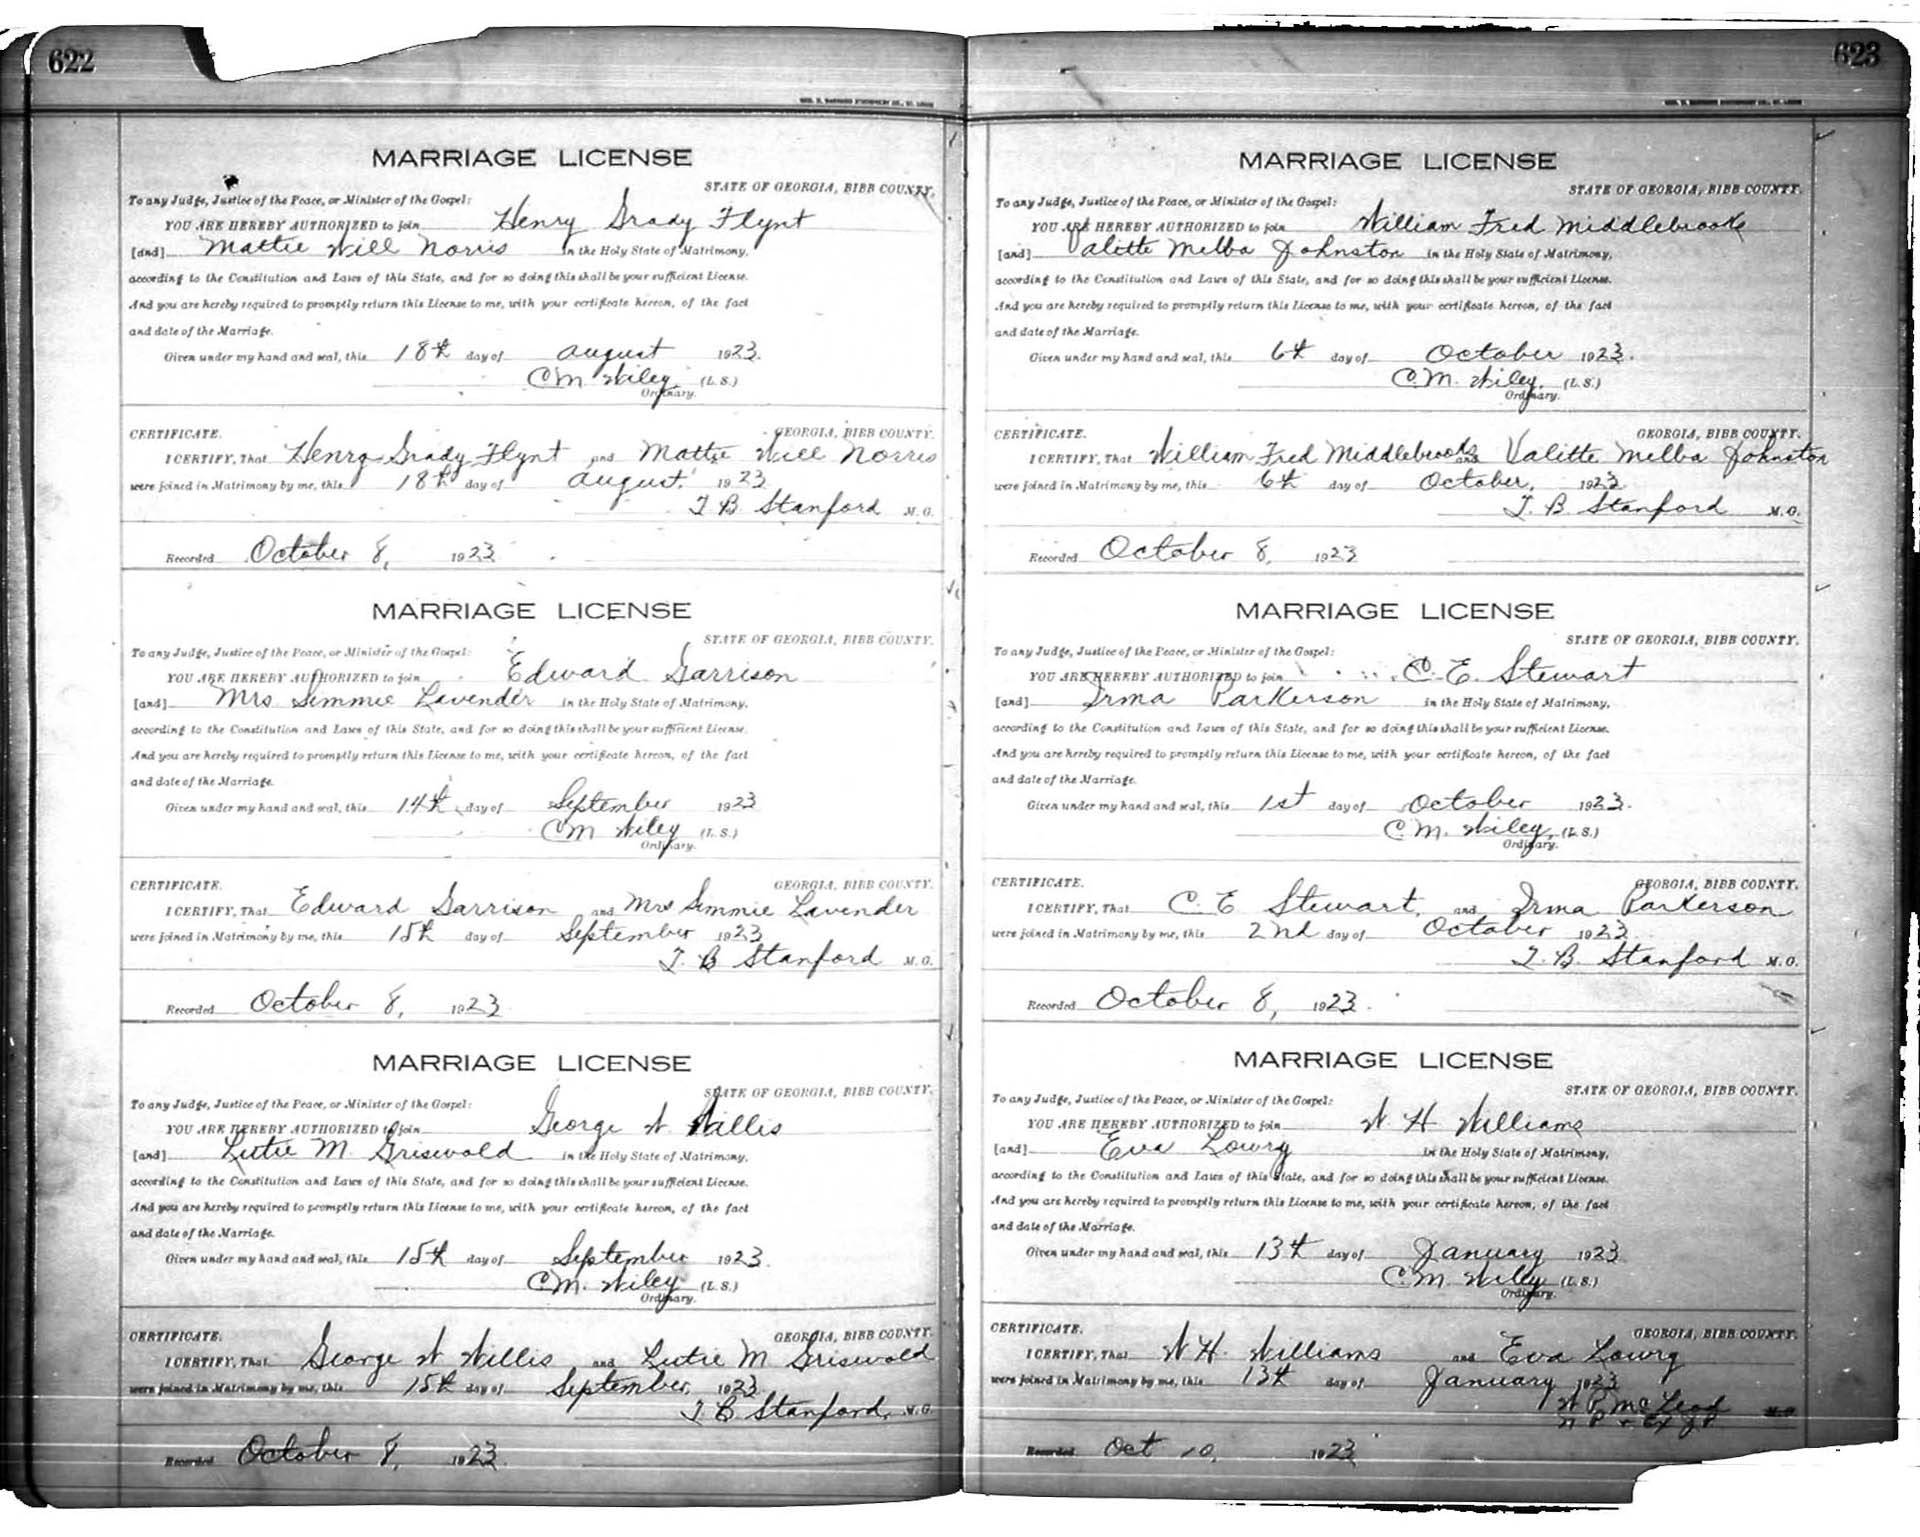 622
MARRIAGE LICENSE
STATE OF GEORGIA, BIBB COUNTY.
To any Judge, Justice of the Peace, or Minister of the Gospel:
YOU ARE HEREBY AUTHORIZED to join Henry Grady Flynt
[and] Mattie Will Norris in the Holy State of Matrimony,
according to the Constitution and Laws of this State, and for so doing this shall be your sufficient License.
And you are hereby required to promptly return this License to me, with your certificate hereon, of the fact
and date of the Marriage.
Given under my hand and seal, this 18th day of August 1923.
C.M. Wiley, (L.S.)
Ordinary.
CERTIFICATE. GEORGIA, BIBB COUNTY.
I CERTIFY, That Henry Grady Flynt and Mattie Will Norris
were joined in Matrimony by me, this 18th day of August, 1923
T B Stanford M.G.
Recorded October 8, 1923
MARRIAGE LICENSE
STATE OF GEORGIA, BIBB COUNTY.
To any Judge, Justice of the Peace, or Minister of the Gospel:
YOU ARE HEREBY AUTHORIZED to join Edward Garrison
[and] Mrs Simmie Lavender in the Holy State of Matrimony,
according to the Constitution and Laws of this State, and for so doing this shall be your sufficient License.
And you are hereby required to promptly return this License to me, with your certificate hereon, of the fact
and date of the Marriage.
Given under my hand and seal, this 14th day of September 1923
CM Wiley (L.S.)
Ordinary.
CERTIFICATE. GEORGIA, BIBB COUNTY.
I CERTIFY, That Edward Garrison and Mrs Simmie Lavender
were joined in Matrimony by me, this 15th day of September 1923
T. B Stanford M.G.
Recorded October 8, 1923
MARRIAGE LICENSE
STATE OF GEORGIA, BIBB COUNTY.
To any Judge, Justice of the Peace, or Minister of the Gospel:
YOU ARE HEREBY AUTHORIZED to join George W Willis
[and] Lutie M. Griswold in the Holy State of Matrimony,
according to the Constitution and Laws of this State, and for so doing this shall be your sufficient License.
And you are hereby required to promptly return this License to me, with your certificate hereon, of the fact
and date of the Marriage.
Given under my hand and seal, this 15th day of September 1923.
C.M. Wiley (L.S.)
Ordinary.
CERTIFICATE. GEORGIA, BIBB COUNTY.
I CERTIFY, That George W Willis and Lutie M Griswold
were joined in Matrimony by me, this 15th day of September, 1923
T B Stanford, M.G.
Recorded October 8, 1923.
623
MARRIAGE LICENSE
STATE OF GEORGIA, BIBB COUNTY.
To any Judge, Justice of the Peace, or Minister of the Gospel:
YOU ARE HEREBY AUTHORIZED to join William Fred Middlebrooks
[and] Valitte Melba Johnston in the Holy State of Matrimony,
according to the Constitution and Laws of this State, and for so doing this shall be your sufficient License.
And you are hereby required to promptly return this License to me, with your certificate hereon, of the fact
and date of the Marriage.
Given under my hand and seal, this 6th day of October 1923.
C.M. Wiley. (L.S.)
Ordinary.
CERTIFICATE. GEORGIA, BIBB COUNTY.
I CERTIFY, That William Fred Middlebrooks and Valitte Melba Johnston
were joined in Matrimony by me, this 6th day of October, 1923.
T. B. Stanford M.G.
Recorded October 8, 1923
MARRIAGE LICENSE
STATE OF GEORGIA, BIBB COUNTY.
To any Judge, Justice of the Peace, or Minister of the Gospel:
YOU ARE HEREBY AUTHORIZED to join C. E. Stewart
[and] Irma Parkerson in the Holy State of Matrimony,
according to the Constitution and Laws of this State, and for so doing this shall be your sufficient License.
And you are hereby required to promptly return this License to me, with your certificate hereon, of the fact
and date of the Marriage.
Given under my hand and seal, this 1st day of October 1923.
C.M. Wiley, (L.S.)
Ordinary.
CERTIFICATE. GEORGIA, BIBB COUNTY.
I CERTIFY, That C. E Stewart, and Irma Parkerson
were joined in Matrimony by me, this 2nd day of October 1923
T. B. Stanford M.G.
Recorded October 8, 1923.
MARRIAGE LICENSE
STATE OF GEORGIA, BIBB COUNTY.
To any Judge, Justice of the Peace, or Minister of the Gospel:
YOU ARE HEREBY AUTHORIZED to join W. H Williams
[and] Eva Lowry in the Holy State of Matrimony,
according to the Constitution and Laws of this State, and for so doing this shall be your sufficient License.
And you are hereby required to promptly return this License to me, with your certificate hereon, of the fact
and date of the Marriage.
Given under my hand and seal, this 13th day of January 1923
C.M. Wiley (L.S.)
Ordinary.
CERTIFICATE. GEORGIA, BIBB COUNTY.
I CERTIFY, That W H. Williams and Eva Lowry
were joined in Matrimony by me, this 13th day of January 1923
W P McLeod M.G.
N P & Ex J P
Recorded Oct 10, 1923